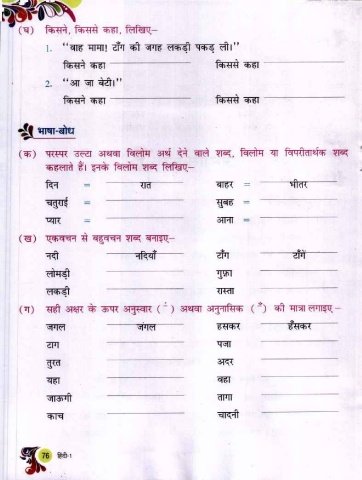 (घ) किसने, किससे कहा, लिखिए–
1. “वाह मामा! टाँग की जगह लकड़ी पकड़ ली।”
किसने कहा किससे कहा
2. “आ जा बेटी।”
किसने कहा किससे कहा
भाषा-बोध
(क) परस्पर उल्टा अथवा विलोम अर्थ देने वाले शब्द, विलोम या विपरीतार्थक शब्द
कहलाते हैं। इनके विलोम शब्द लिखिए–
दिन = रात बाहर = भीतर
चतुराई = सुबह =
प्यार = आना =
(ख) एकवचन से बहुवचन शब्द बनाइए–
नदी नदियाँ टाँग टाँगें
लोमड़ी गुफ़ा
लकड़ी रास्ता
(ग) सही अक्षर के ऊपर अनुस्वार ( ं ) अथवा अनुनासिक ( ँ ) की मात्रा लगाइए –
जगल जंगल हसकर हँसकर
टाग पजा
तुरत अदर
यहा वहा
जाऊगी तागा
काच चादनी
76 हिंदी-1